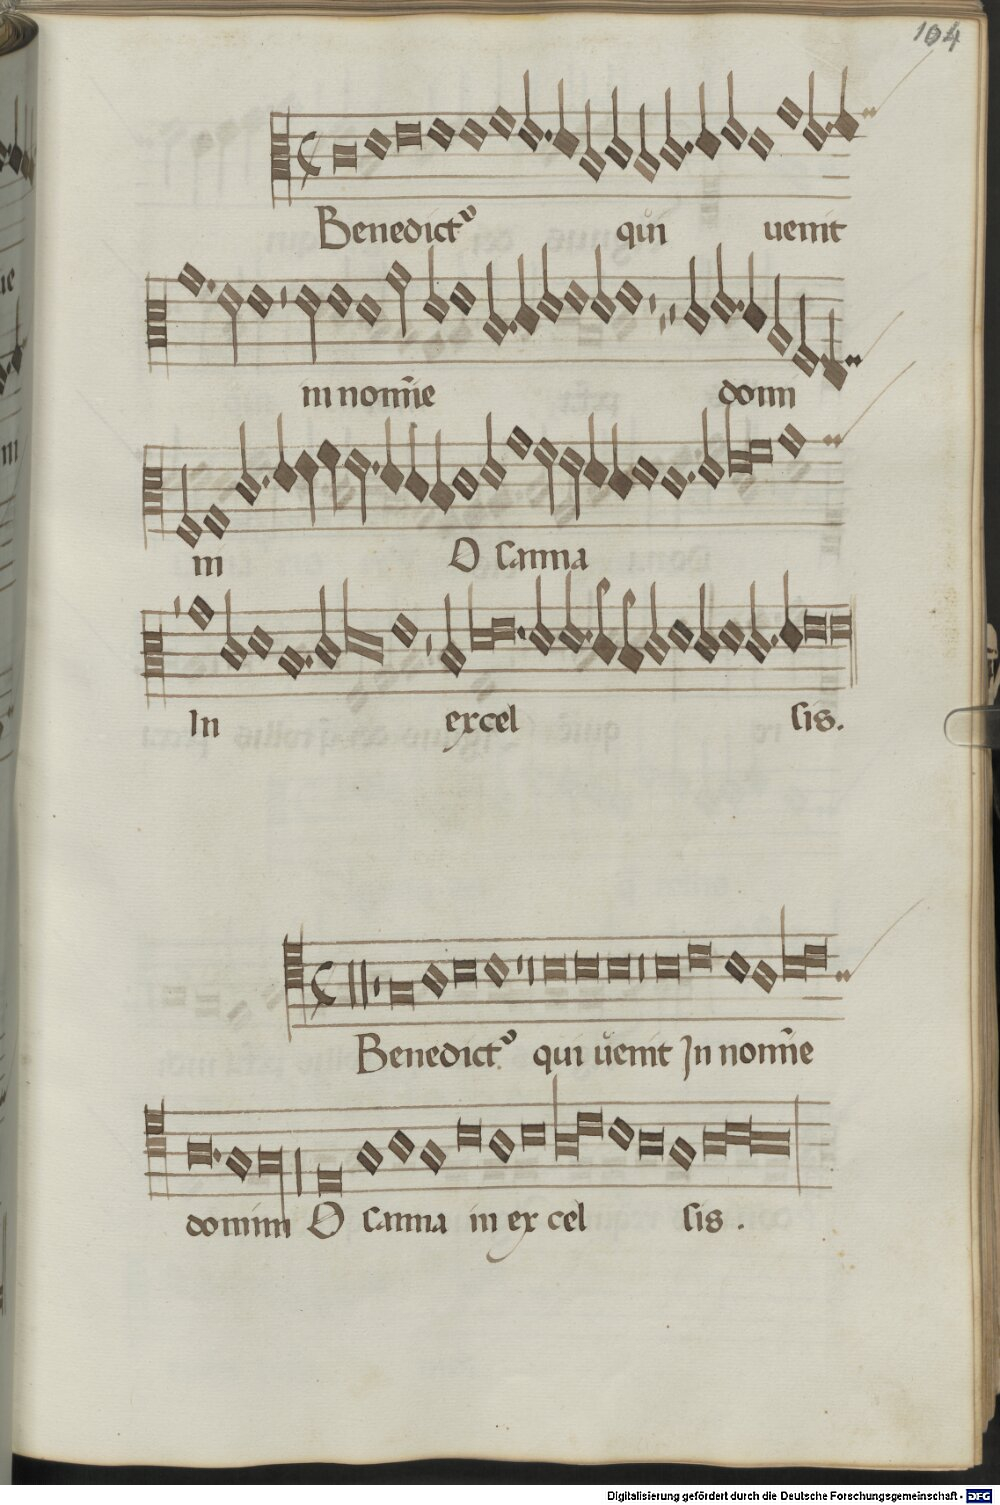 104
Benedictꝰ qui uenit
in nom̄ie domi
ni O sanna
In excel sis.
Benedictꝰ qui uenit In nom̄ie
domini O sanna in ex cel sis .
Digitalisierung gefördert durch die Deutsche Forschungsgemeinschaft - DFG